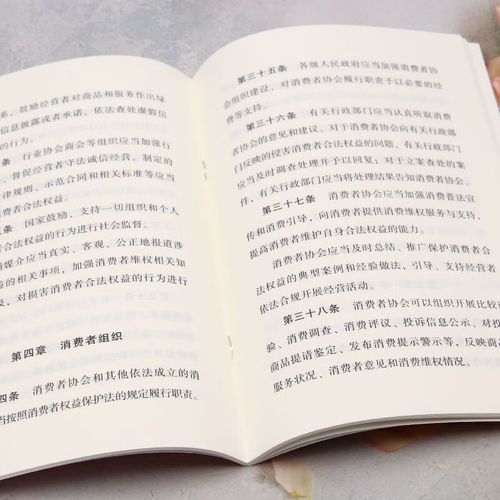 系，鼓励经营者对商品和服务作出绿
信息披露或者承诺，依法查处虚假信
的行为。
条　行业协会商会等组织应当加强行
，督促经营者守法诚信经营，制定的
律规则、示范合同和相关标准等应当
费者合法权益。
条　国家鼓励、支持一切组织和个人
合法权益的行为进行社会监督。
播媒介应当真实、客观、公正地报道涉
益的相关事项，加强消费者维权相关知
及，对损害消费者合法权益的行为进行
第四章　消费者组织
四条　消费者协会和其他依法成立的消
当按照消费者权益保护法的规定履行职责。
第三十五条　各级人民政府应当加强消费者协
会组织建设，对消费者协会履行职责予以必要的经
费等支持。
第三十六条　有关行政部门应当认真听取消费
者协会的意见和建议。对于消费者协会向有关行政部
门反映的侵害消费者合法权益的问题，有关行政部门
应当及时调查处理并予以回复；对于立案查处的案
件，有关行政部门应当将处理结果告知消费者协会。
第三十七条　消费者协会应当加强消费普法宣
传和消费引导，向消费者提供消费维权服务与支持，
提高消费者维护自身合法权益的能力。
消费者协会应当及时总结、推广保护消费者合
法权益的典型案例和经验做法，引导、支持经营者
依法合规开展经营活动。
第三十八条　消费者协会可以组织开展比较
验、消费调查、消费评议、投诉信息公示、对投
商品提请鉴定、发布消费提示警示等，反映商
服务状况、消费者意见和消费维权情况。